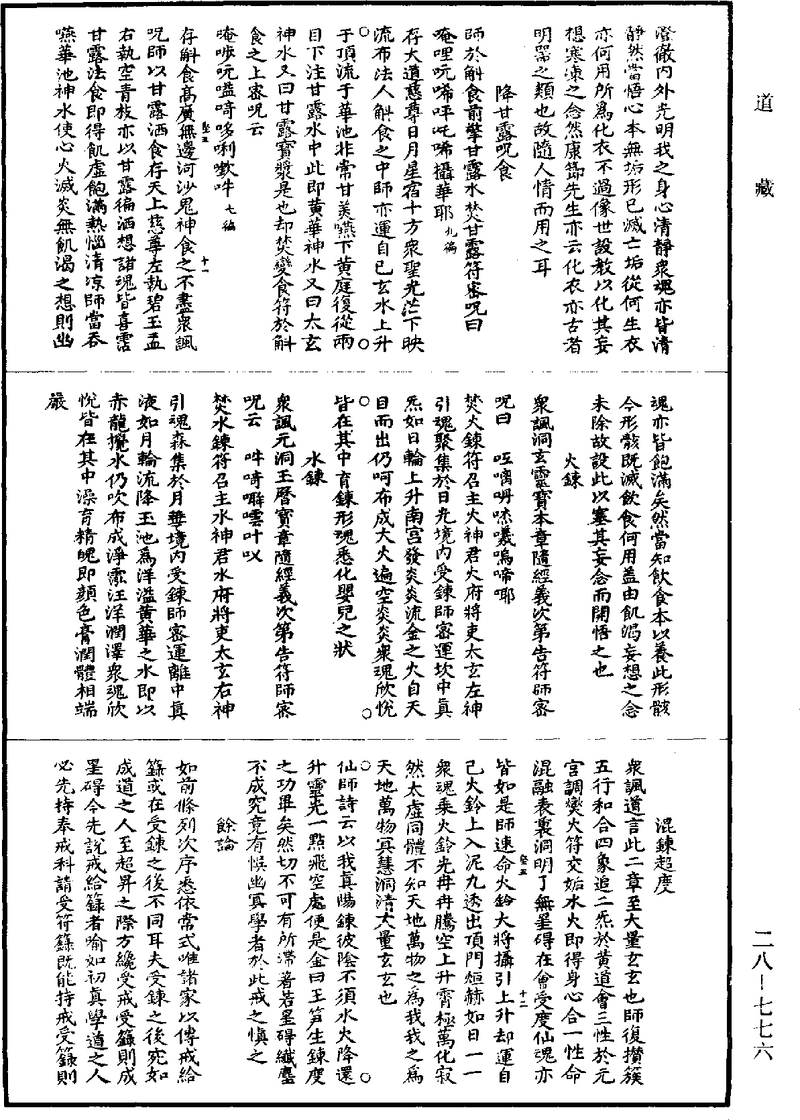 道藏
澄徹內外光明我之身心清靜衆魂亦皆清
靜然當悟心本無垢形已滅亡垢從何生衣
亦何用所爲化衣不過像世設教以化其妄
想寒凍之念然康端先生亦云化衣亦古者
明器之類也故隨人情而用之耳
降甘露呪食
師於斛食前擎甘露水焚甘露符密呪曰
唵哩吭唏呼吒唏攝華耶 九徧
存大道慈尊日月星宿十方衆聖光茫下映
流布法人斛食之中師亦運自己玄水上升
于頂流于華池非常甘美嚥下黃庭復從兩
目下注甘露水中此即黃華神水又曰太玄
神水又曰甘露寶漿是也却焚變食符於斛
食之上密呪云
唵 吭嗌㗨哆唎 吽 七徧
存斛食高廣無邊河沙鬼神食之不盡衆諷
呪師以甘露洒食存天上慈尊左執碧玉盂
右執空青枝亦以甘露徧洒想諸魂皆喜霑
甘露法食即得飢虛飽滿熱惱清凉師當吞
嚥華池神水使心火滅炎無飢渴之想則幽
魂亦皆飽滿矣然當知飲食本以養此形骸
今形骸既滅飲食何用盖由飢渴妄想之念
未除故設此以塞其妄念而開悟之也
火鍊
衆諷洞玄靈寶本章隨經義次第告符師密
呪曰 嗚啼耶
焚火鍊符召主火神君火府將吏太玄左神
引魂聚集於日光境內受鍊師密運坎中眞
炁如日輪上升南宮發炎炎流金之火自天
目而出仍呵布成大火遍空炎炎衆魂欣悅
皆在其中育鍊形魂悉化嬰兒之狀
水鍊
衆諷元洞玉曆寶章隨經義次第告符師密
呪云 吽㗨 雲叶
焚水鍊符召主水神君水府將吏太玄右神
引魂森集於月華境內受鍊師密運離中眞
液如月輪流降玉池爲洋溢黃華之水即以
赤龍攪水仍吹布成淨霈汪洋潤澤衆魂欣
悅皆在其中澡育精魄即顔色膏潤體相端
嚴
混鍊超度
衆諷道言此二章至大量玄玄也師復攢簇
五行和合四象追二炁於黃道會三性於元
宮調爕火符交姤水火即得身心合一性命
混融表裏洞明了無罣碍在會受度仙魂亦
皆如是師速命火鈴大將攝引上升却運自
己火鈴上入泥丸透出頂門烜赫如日一一
衆魂乘火鈴光冉冉騰空上升霄極萬化寂
然太虛同體不知天地萬物之爲我我之爲
天地萬物冥慧洞清大量玄玄也
仙師詩云以我眞陽鍊彼陰不須水火降還
升靈光一點飛空處便是金曰王笋生鍊度
之功畢矣然切不可有所滯著若罣碍纖塵
不成究竟有悞幽冥學者於此戒之愼之
餘論
如前條列次序悉依常式唯諸家以傳戒給
籙或在受鍊之後不同耳夫受鍊之後究如
成道之人至超昇之際方纔受戒受籙則成
罣碍今先說戒給籙者喻如初眞學道之人
必先持奉戒科請受符籙既能持戒受籙則
二八—七七六